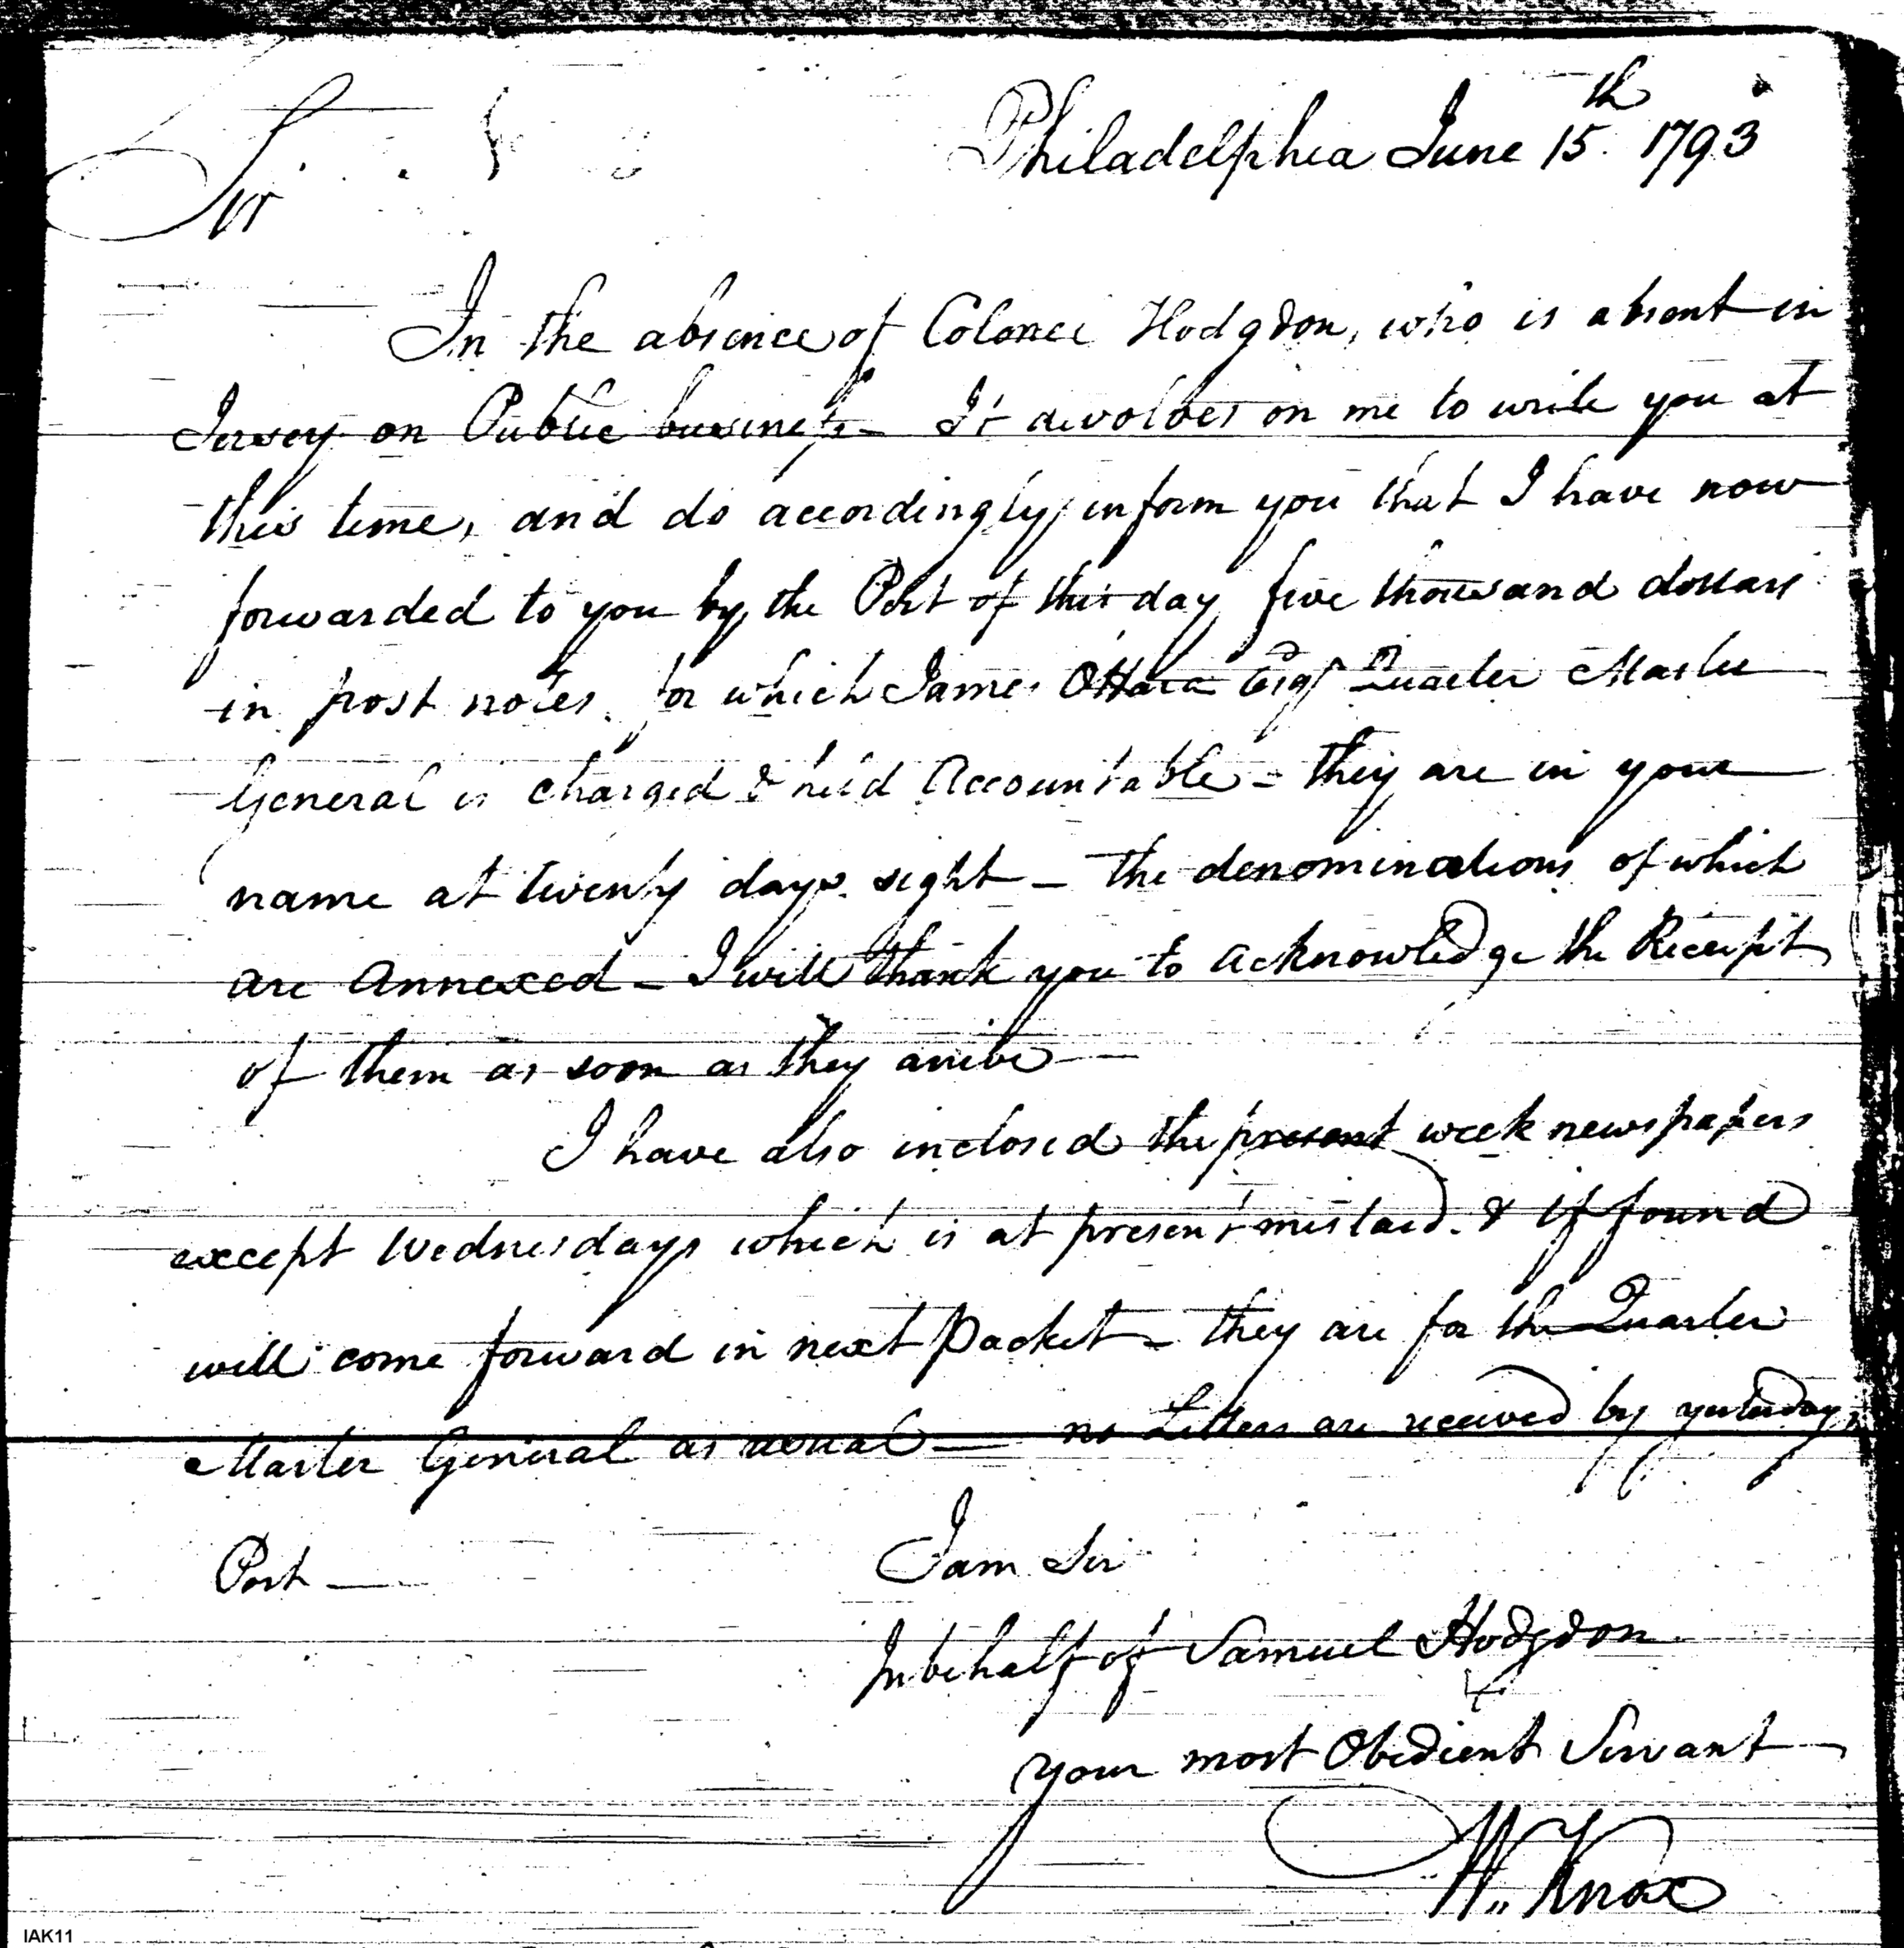 Philadelphia June 15th 1793
Sir
In the absence of Colonel Hodgdon, who is absent in
Jersey on Public business - It devolves on me to write you at
this time, and do accordingly inform you that I have now
forwarded to you by the Post of this day five thousand dollars
in post notes, for which James OHara Esqr Quarter Master
General is charged & held Accountable - they are in your
name at twenty days sight - the denominations of which
are Annexed - I will thank you to acknowledge the Receipt
of them as soon as they arrive -
I have also inclosed the present week newspapers
except Wednesdays which is at present mislaid. & if found
will come forward in next Packet - they are for the Quarter
Master General as usual - no Letters are received by yesterdays
Post -
I am Sir
In behalf of Samuel Hodgdon
your most Obedient Servant
W. Knox
IAK11